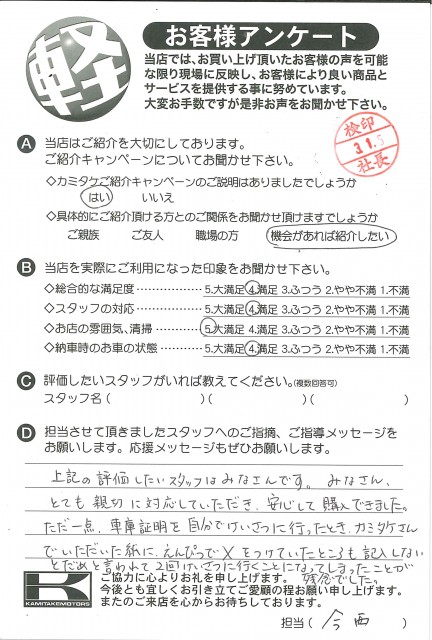 軽
お客様アンケート
当店では、お買い上げ頂いたお客様の声を可能
な限り現場に反映し、お客様により良い商品と
サービスを提供する事に努めています。
大変お手数ですが是非お声をお聞かせ下さい。
検印
31.5
社長
A 当店はご紹介を大切にしております。
ご紹介キャンペーンについてお聞かせ下さい。
◇カミタケご紹介キャンペーンのご説明はありましたでしょうか
はい いいえ
◇具体的にご紹介頂ける方とのご関係をお聞かせ頂けますでしょうか
ご親族 ご友人 職場の方 機会があれば紹介したい
B 当店を実際にご利用になった印象をお聞かせ下さい。
◇総合的な満足度・・・・・・・・・・ 5.大満足 4.満足 3.ふつう 2.やや不満 1.不満
◇スタッフの対応・・・・・・・・・・ 5.大満足 4.満足 3.ふつう 2.やや不満 1.不満
◇お店の雰囲気、清掃・・・・・・・ 5.大満足 4.満足 3.ふつう 2.やや不満 1.不満
◇納車時のお車の状態・・・・・・・ 5.大満足 4.満足 3.ふつう 2.やや不満 1.不満
C 評価したいスタッフがいれば教えてください。(複数回答可)
スタッフ名( )( )( )
D 担当させて頂きましたスタッフへのご指摘、ご指導メッセージを
お願いします。応援メッセージもぜひお願いします。
上記の評価したいスタッフはみなさんです。みなさん、
とても親切に対応していただき、安心して購入できました。
ただ一点、車庫証明を自分でけいさつに行ったとき、カミタケさん
でいただいた紙に、えんぴつで×をつけていたところも記入しない
とだめと言われて2回けいさつに行くことになってしまったことが
残念でした。
KAMITAKEMOTORS
ご協力に心よりお礼を申し上げます。
今後とも宜しくお引き立てご愛顧の程お願い申し上げます。
またのご来店を心からお待ちしております。
担当( 今西 )